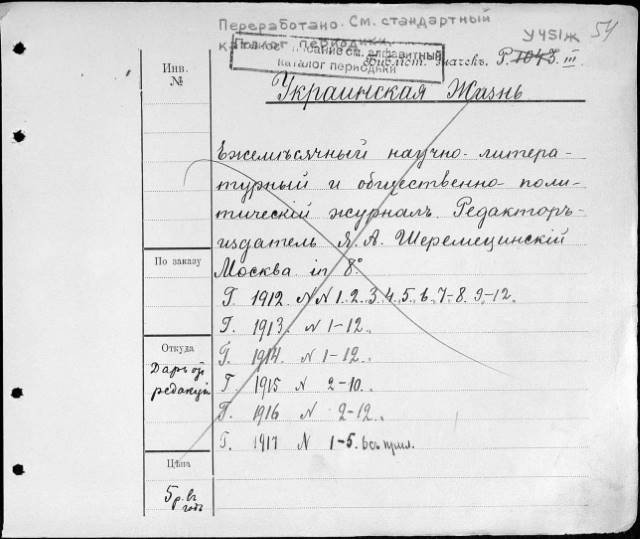 Переработано. См. стандартный
каталог периодики
У451ж 54
алфавитный
каталог периодики
Значекъ. Р. 1043. III.
Инв.
№
Украинская Жизнь
Ежемѣсячный научно-литера-
турный и общественно-поли-
тическій журналъ. Редакторъ-
издатель Я. А. Шеремецинскій
Москва in 8°
Г. 1912. NN 1. 2. 3. 4. 5. 6. 7-8. 9-12.
Г. 1913. N 1-12.
Г. 1914. N 1-12.
Г. 1915 N 2-10.
Г. 1916 N 2-12.
Г. 1917 N 1-5.
По заказу
Откуда
Даръ отъ
редакціи
Цѣна
5 р. въ
годъ